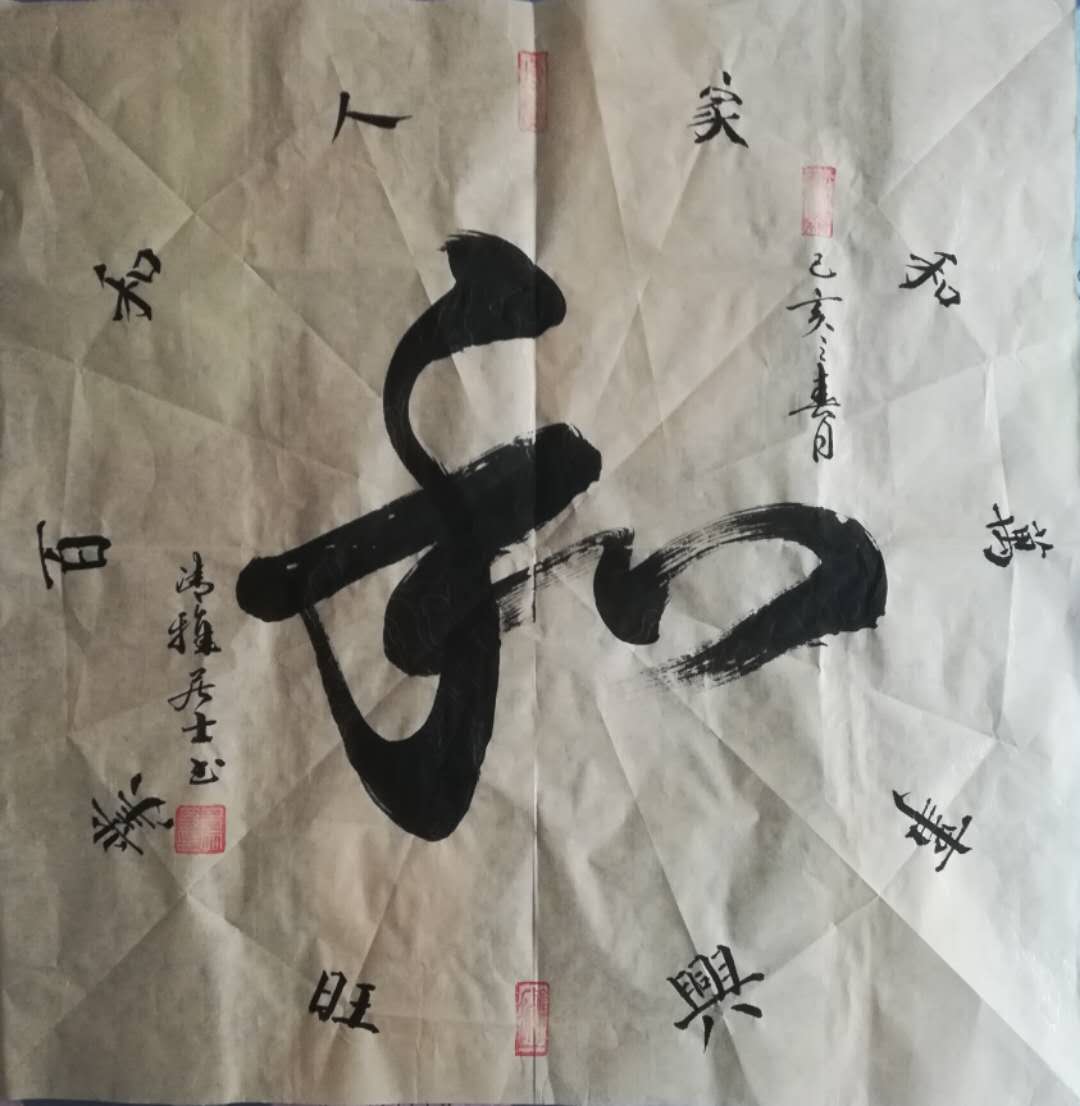 和
家和萬事興
人和百業旺
己亥之春月
清雅居士书